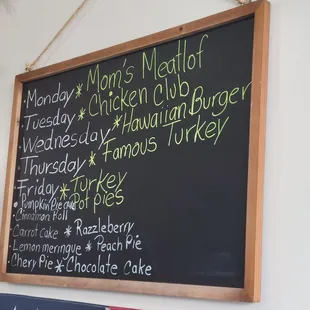 • Monday * Mom's Meatlof
• Tuesday * Chicken Club
• Wednesday * Hawaiian Burger
• Thursday * Famous Turkey
• Friday * Turkey
Pot pies
• Pumpkin Pie
• Cinnamon Roll
• Carrot Cake * Razzleberry
• Lemon meringue * Peach Pie
• Chery Pie * Chocolate Cake